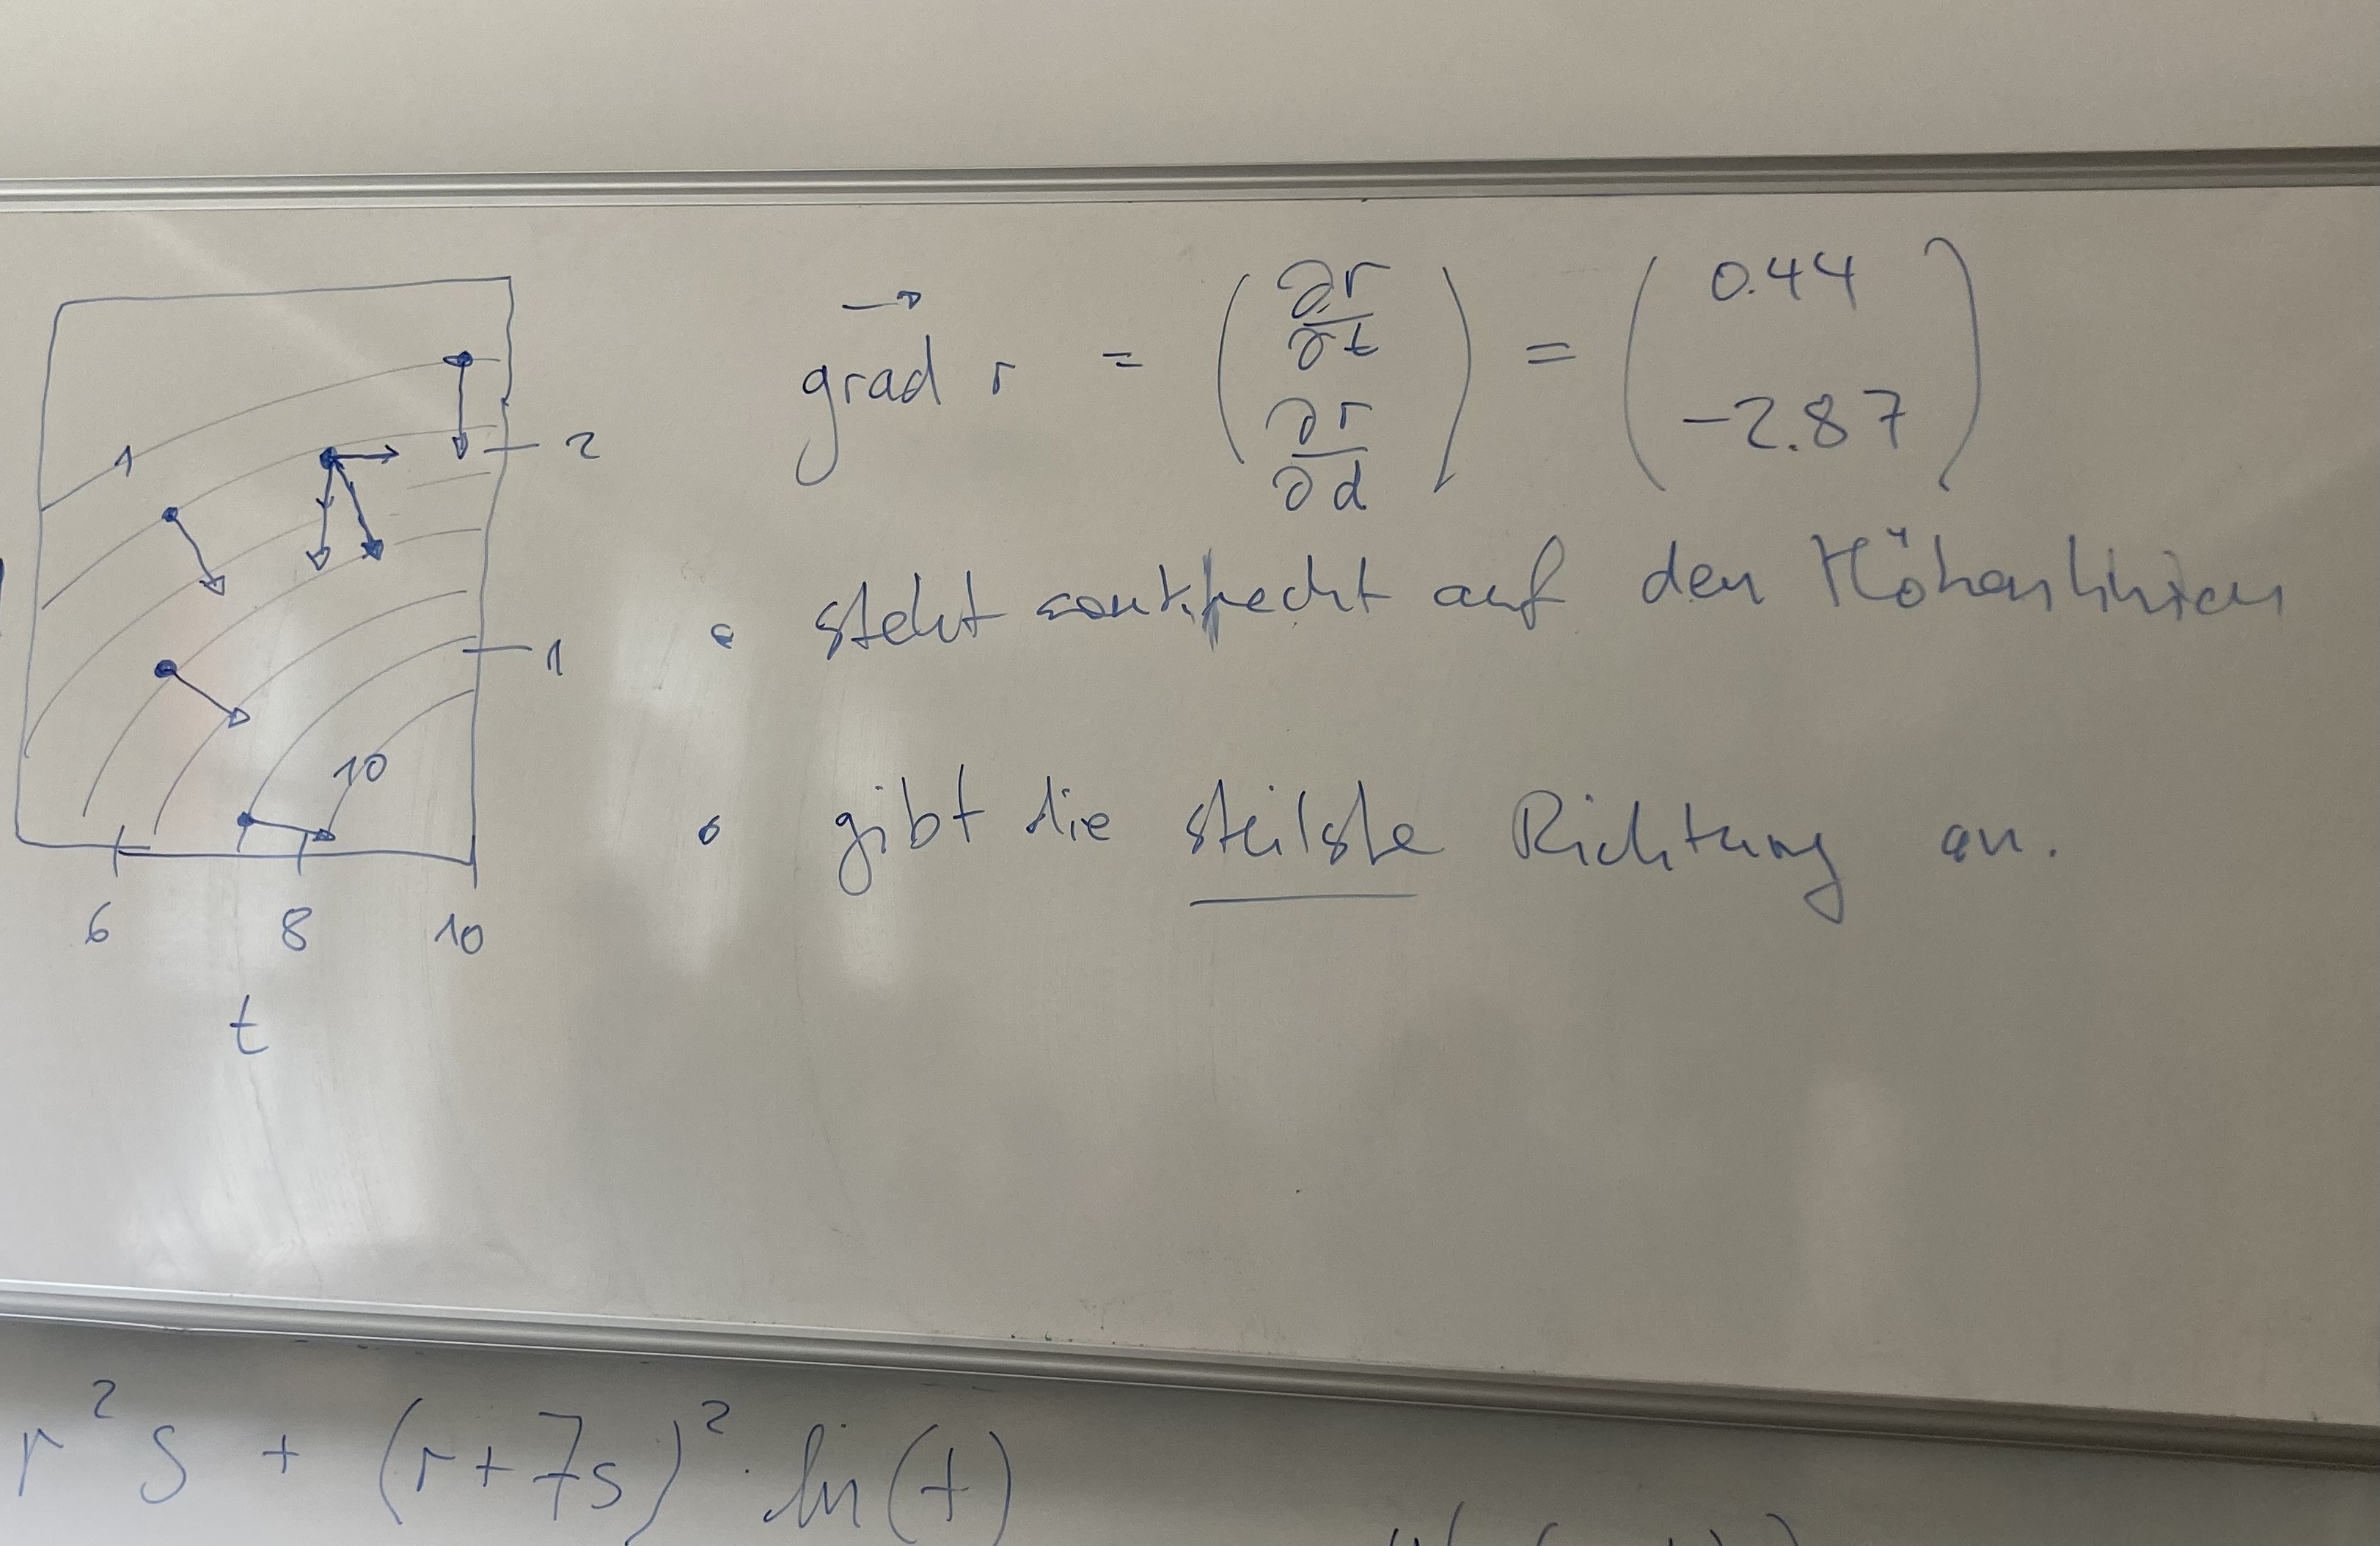 1
2
1
10
6 8 10
t
grad r = ( ∂r/∂t ∂r/∂d ) = ( 0.44 -2.87 )
• steht senkrecht auf den Höhenlinien
• gibt die steilste Richtung an.
r² s + (r+7s)² · ln(t)